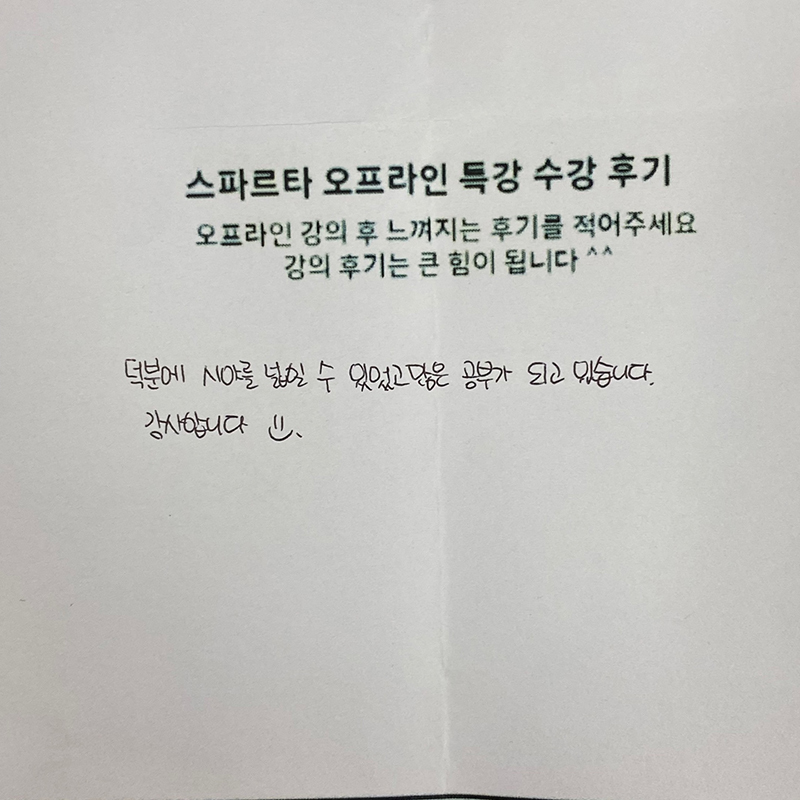 스파르타 오프라인 특강 수강 후기
오프라인 강의 후 느껴지는 후기를 적어주세요
강의 후기는 큰 힘이 됩니다 ^^
덕분에 시야를 넓힐 수 있었고 많은 공부가 되고 있습니다.
감사합니다 :).